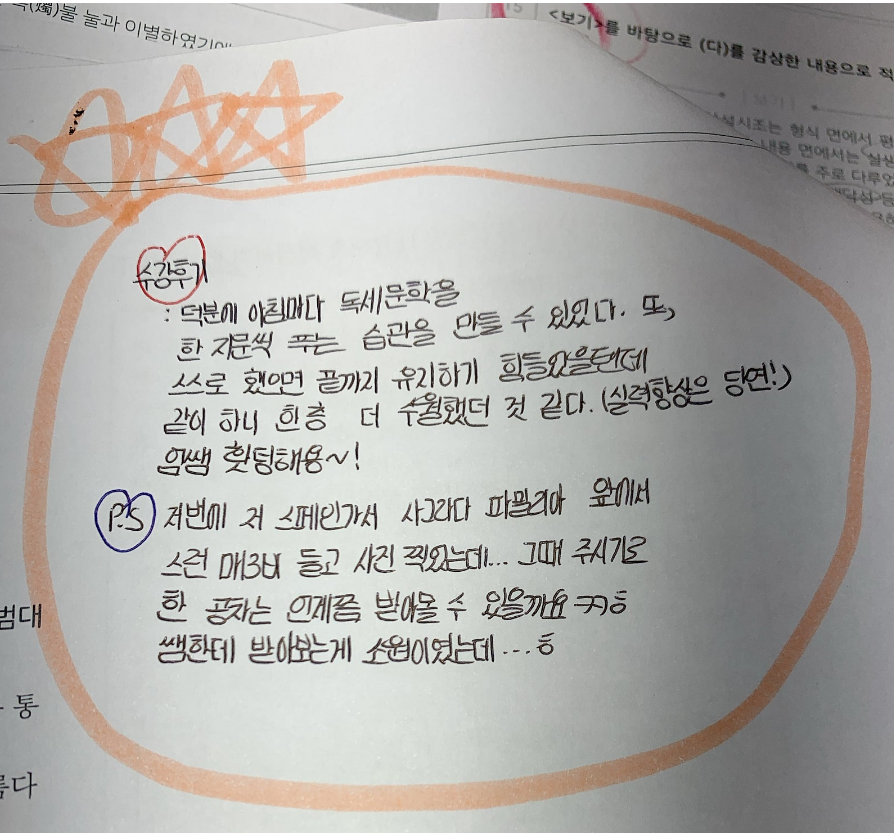 (燭)불 눌과 이별하였기에
15 <보기>를 바탕으로 (다)를 감상한 내용으로 적
보기
설시조는 형식 면에서 평
내용 면에서는 실생
를 주로 다루었
수강후기
: 덕분에 아침마다 독세문학을
한 지문씩 푸는 습관을 만들 수 있었다. 또,
스스로 했으면 끝까지 유지하기 힘들었을텐데
같이 하니 한층 더 수월했던 것 같다. (실력향상은 당연!)
암쌤 홧팅해용~!
P.S 저번에 저 스페인가서 사그라다 파밀리아 앞에서
스런 매3비 들고 사진 찍었는데... 그때 주시기로
한 공차는 언제쯤 받아볼 수 있을까요 ㅋㅋㅎ
쌤한데 받아보는게 소원이였는데...ㅎ
범대
통
름다